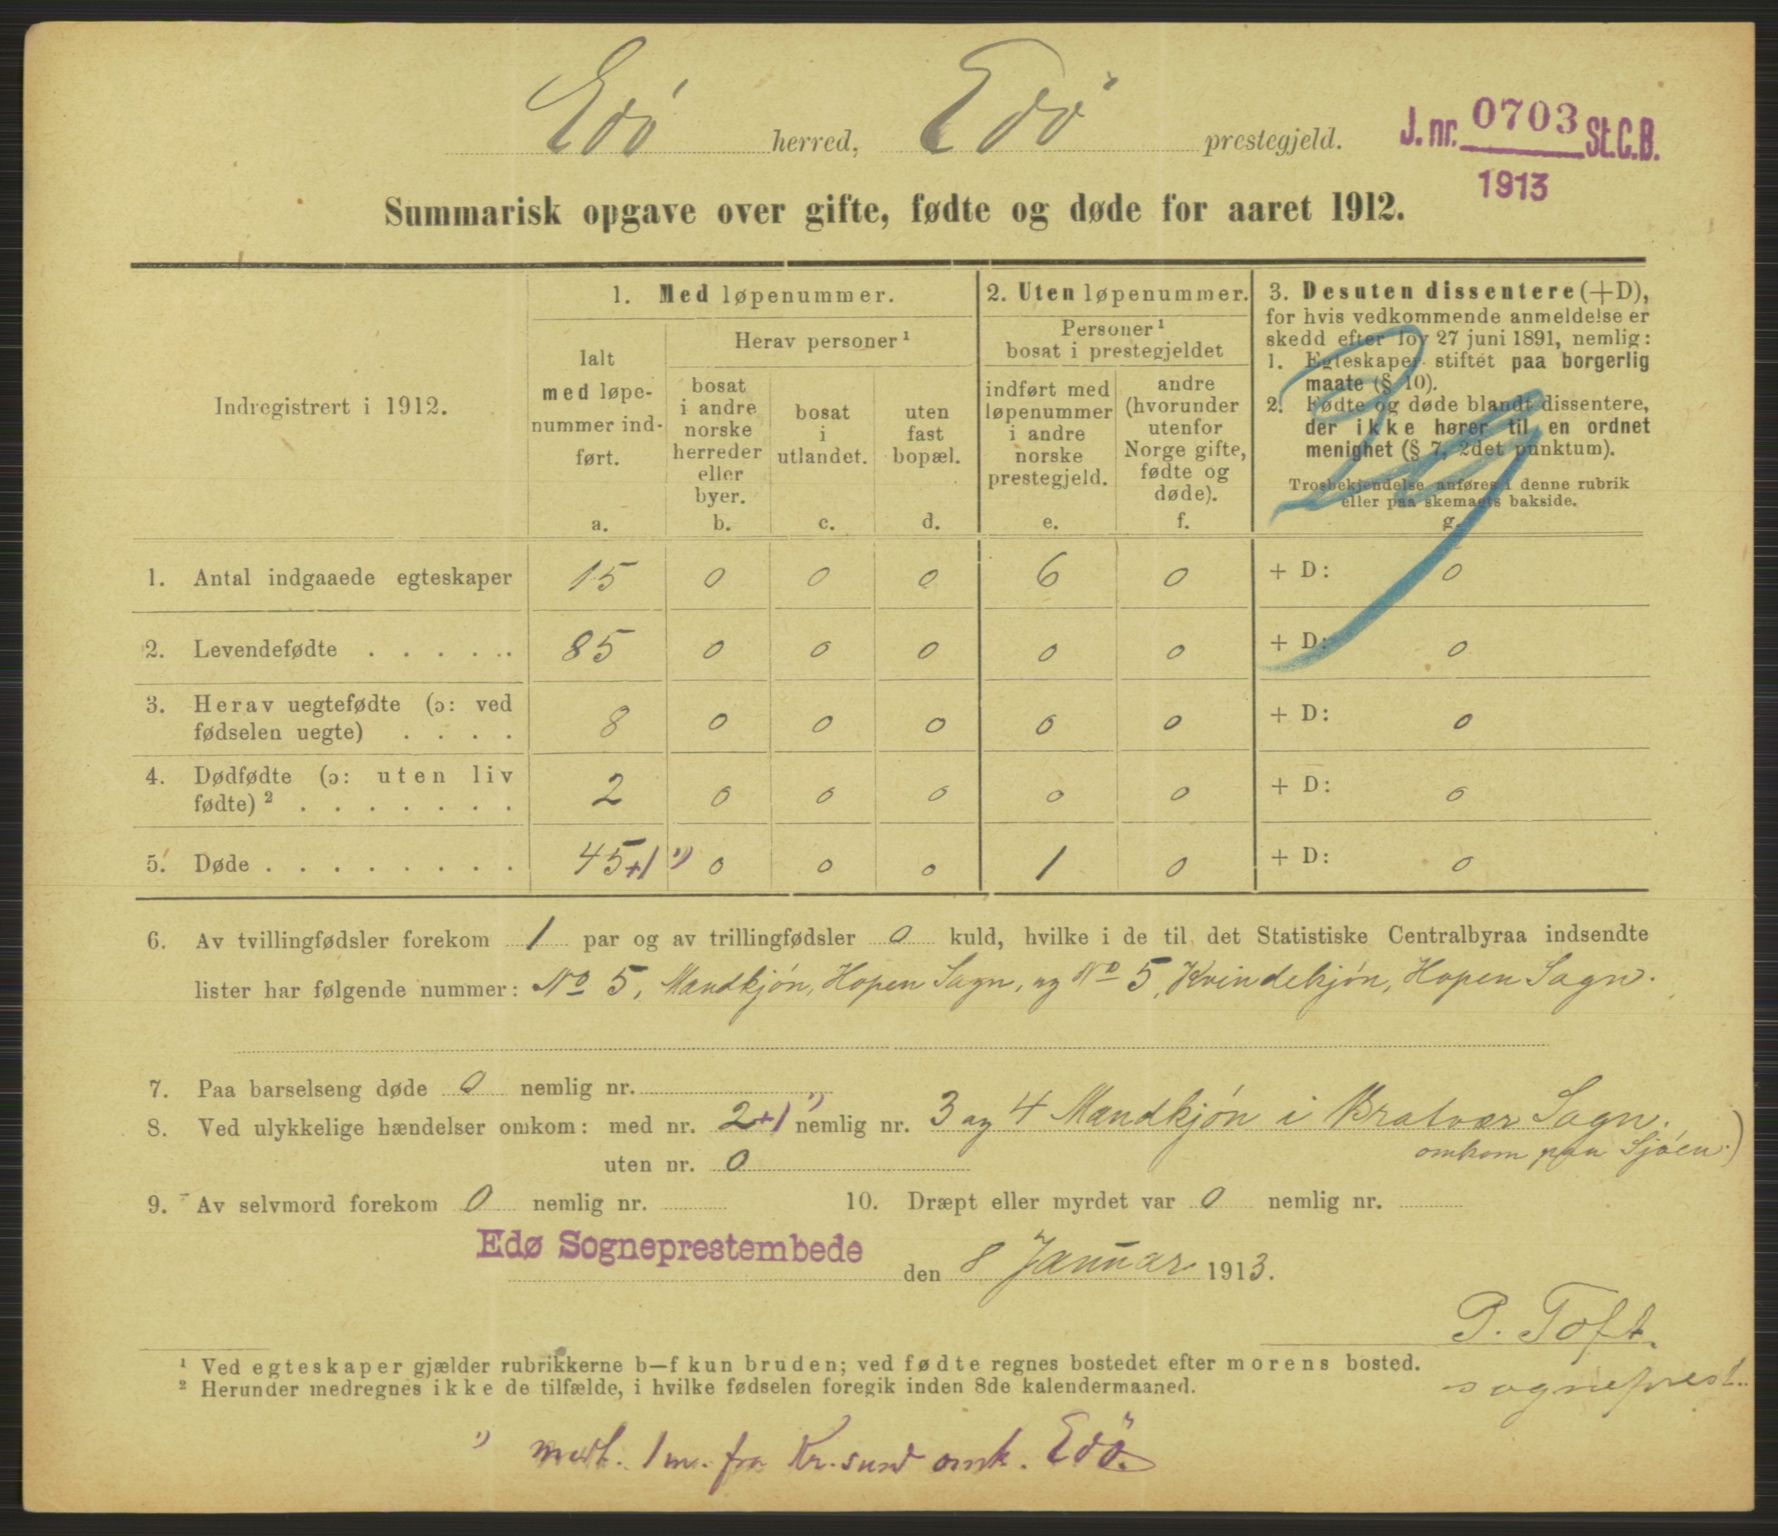 Edö herred, Edö prestegjeld.
J. nr. 0703 St.C.B.
1913
Summarisk opgave over gifte, fødte og døde for aaret 1912.
Indregistrert i 1912.
1. Med løpenummer.
Ialt
med løpe-
nummer ind-
ført.
a.
Herav personer ¹
bosat
i andre
norske
herreder
eller
byer.
b.
bosat
i
utlandet.
c.
uten
fast
bopæl.
d.
2. Uten løpenummer.
Personer ¹
bosat i prestegjeldet
indført med
løpenummer
i andre
norske
prestegjeld.
e.
andre
(hvorunder
utenfor
Norge gifte,
fødte og
døde).
f.
3. Desuten dissentere (+D),
for hvis vedkommende anmeldelse er
skedd efter lov 27 juni 1891, nemlig:
1. Egteskaper stiftet paa borgerlig
maate (§ 10).
2. Fødte og døde blandt dissentere,
der ikke hører til en ordnet
menighet (§ 7, 2det punktum).
Trosbekjendelse anføres i denne rubrik
eller paa skemaets bakside.
g.
1. Antal indgaaede egteskaper 15 0 0 0 6 0 + D: 0
2. Levendefødte . . . . . . 85 0 0 0 0 0 + D: 0
3. Herav uegtefødte (ɔ: ved
fødselen uegte) . . . . 8 0 0 0 0 0 + D: 0
4. Dødfødte (ɔ: uten liv
fødte) ² . . . . . . . 2 0 0 0 0 0 + D: 0
5. Døde . . . . . . . . 45+1 ¹) 0 0 0 1 0 + D: 0
6. Av tvillingfødsler forekom 1 par og av trillingfødsler 0 kuld, hvilke i de til det Statistiske Centralbyraa indsendte
lister har følgende nummer: No 5, Mandkjön, Hopen Sogn, og No 5, Kvindekjön, Hopen Sogn.
7. Paa barselseng døde 0 nemlig nr.
8. Ved ulykkelige hændelser omkom: med nr. 2+1 ¹) nemlig nr. 3 og 4 Mandkjön i Bratvær Sogn.
omkom paa Sjöen.)
uten nr. 0
9. Av selvmord forekom 0 nemlig nr. 10. Dræpt eller myrdet var 0 nemlig nr.
Edø Sogneprestembede
den 8 Januar 1913.
P. Toft.
sogneprest.
¹ Ved egteskaper gjælder rubrikkerne b—f kun bruden; ved fødte regnes bostedet efter morens bosted.
² Herunder medregnes ikke de tilfælde, i hvilke fødselen foregik inden 8de kalendermaaned.
¹) 1 m. fra Kr.sund omk. Edö.